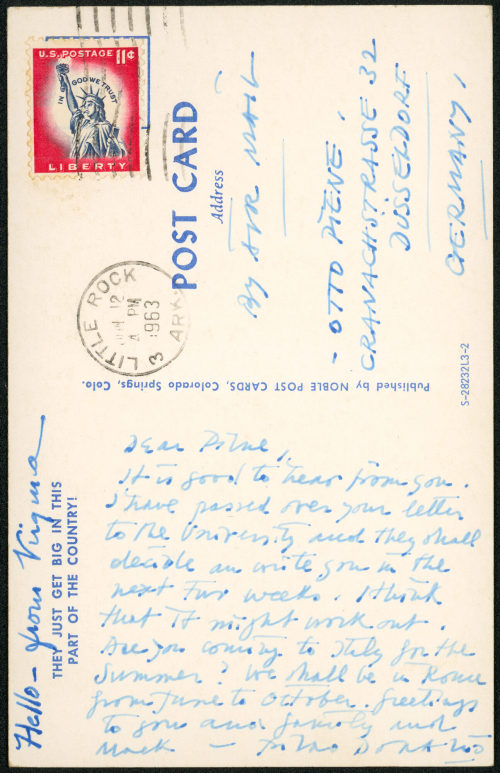 U.S. POSTAGE 11¢
IN GOD WE TRUST
LIBERTY
LITTLE ROCK
12
PM
1963
3 ARK
POST CARD
Address
By AIR MAIL
- OTTO PIENE.
CRANACHSTRASSE 32
DÜSSELDORF
GERMANY.
Published by NOBLE POST CARDS, Colorado Springs, Colo.
S-28232L3-2
Hallo - from Virginia
THEY JUST GET BIG IN THIS
PART OF THE COUNTRY!
Dear Piene,
It is good to hear from you.
I have passed over your letter
to the University and they shall
decide an write you in the
next two weeks. I think
that it might work out.
Are you coming to Italy for the
Summer? We shall be in Rome
from June to October. Greetings
to you and family and
Mack -